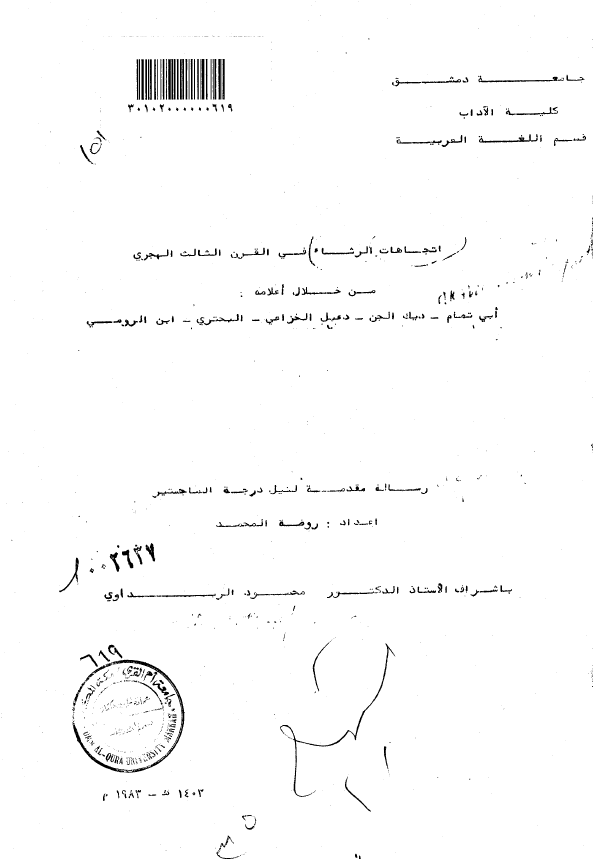 جامعة دمشق
كلية الآداب
قسم اللغة العربية
٣٠١٠٢٠٠٠٠٠٠٦١٩
اتجاهات الرثاء في القرن الثالث الهجري
من خلال أعلامه :
أبي تمام - ديك الجن - دعبل الخزاعي - البحتري - ابن الرومي
رسالة مقدمة لنيل درجة الماجستير
اعداد : روضة المحمد
١٠٠٢٦٣٧
باشراف الأستاذ الدكتور محمود الربداوي
٦١٩
جامعة أم القرى مكة
UMM AL-QURA UNIVERSITY MAKKAH
١٤٠٣ هـ - ١٩٨٣ م